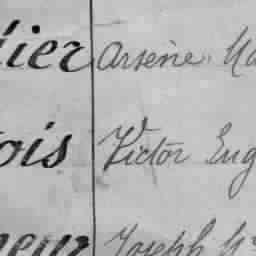 lier Arsène
ois Victor Eug
neur Joseph